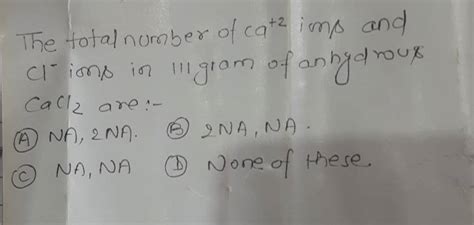 The total number of ca+2 ions and
Cl- ions in 111 gram of anhydrous
CaCl2 are :-
(A) NA, 2NA. (B) 2NA, NA.
(C) NA, NA (D) None of these.